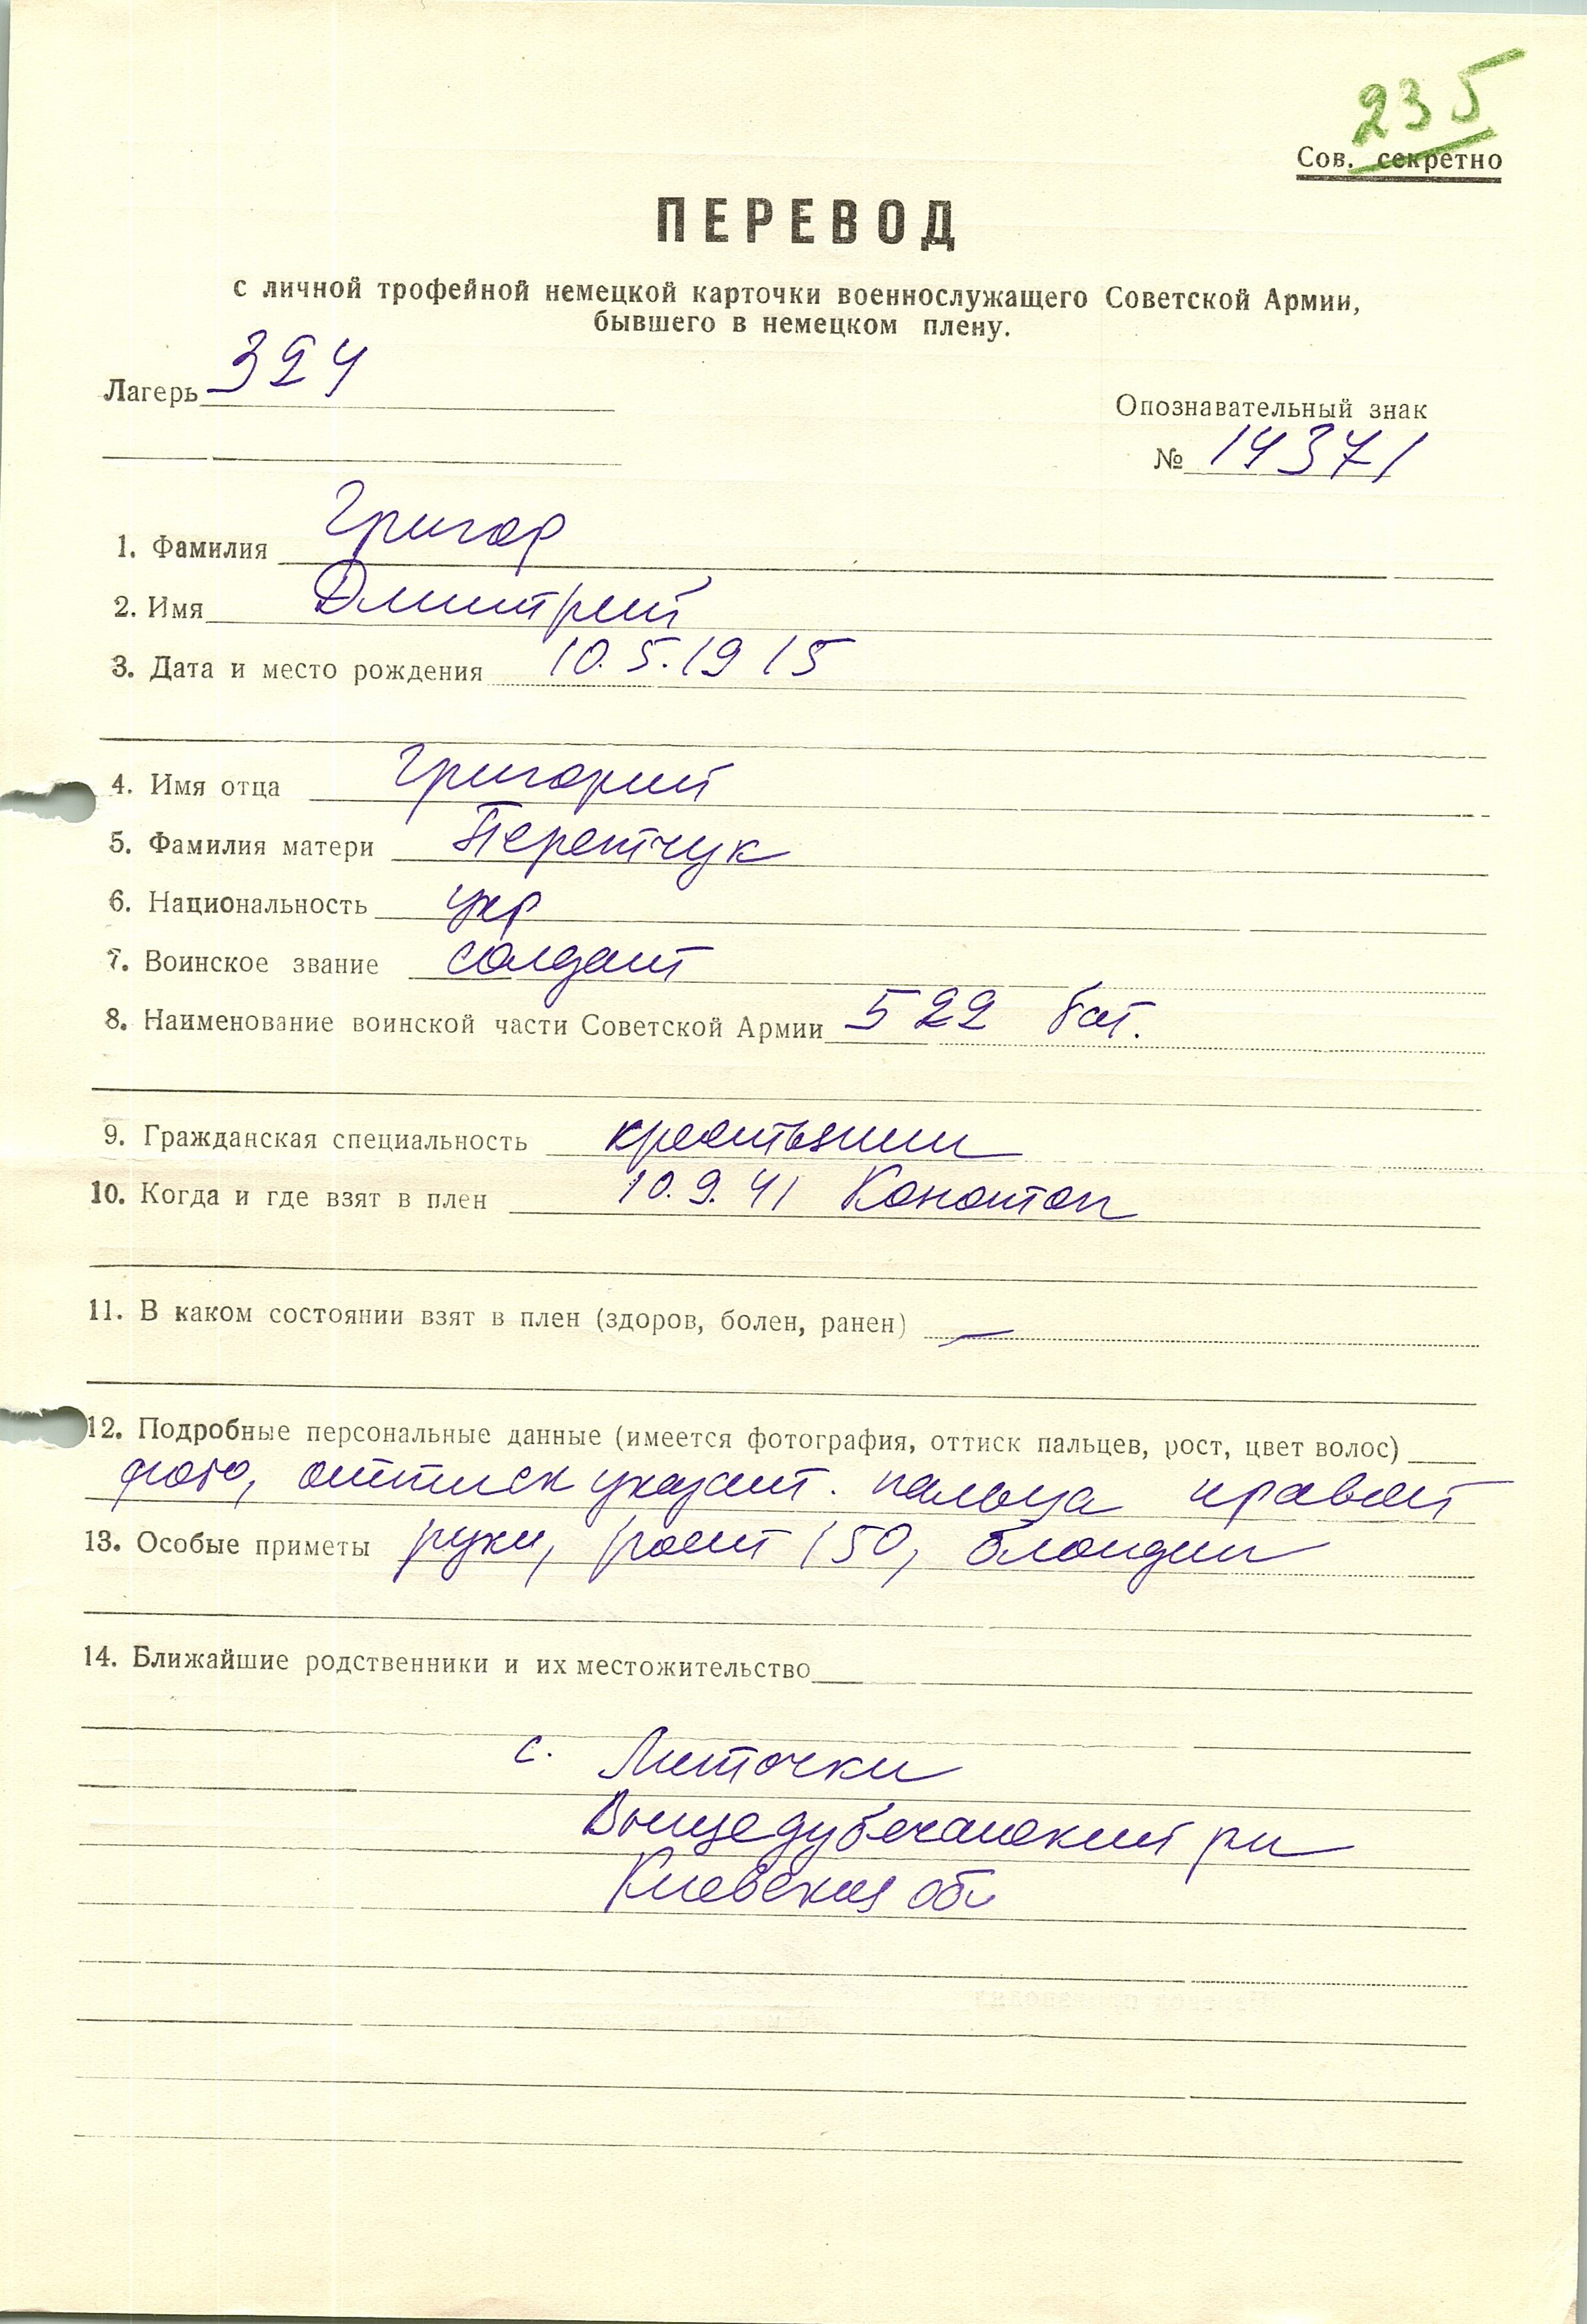 235
Сов. секретно
ПЕРЕВОД
с личной трофейной немецкой карточки военнослужащего Советской Армии,
бывшего в немецком плену.
Лагерь 324
Опознавательный знак
№ 14371
1. Фамилия Григор
2. Имя Дмитрий
3. Дата и место рождения 10.5.1915
4. Имя отца Григорий
5. Фамилия матери Перетчук
6. Национальность укр
7. Воинское звание солдат
8. Наименование воинской части Советской Армии 522 бат.
9. Гражданская специальность крестьянин
10. Когда и где взят в плен 10.9.41 Конотоп
11. В каком состоянии взят в плен (здоров, болен, ранен) —
12. Подробные персональные данные (имеется фотография, оттиск пальцев, рост, цвет волос)
фото, оттиск указат. пальца правой
13. Особые приметы руки, рост 150, блондин
14. Ближайшие родственники и их местожительство
с. Литочки
Вищедубечанский рн
Киевская обл